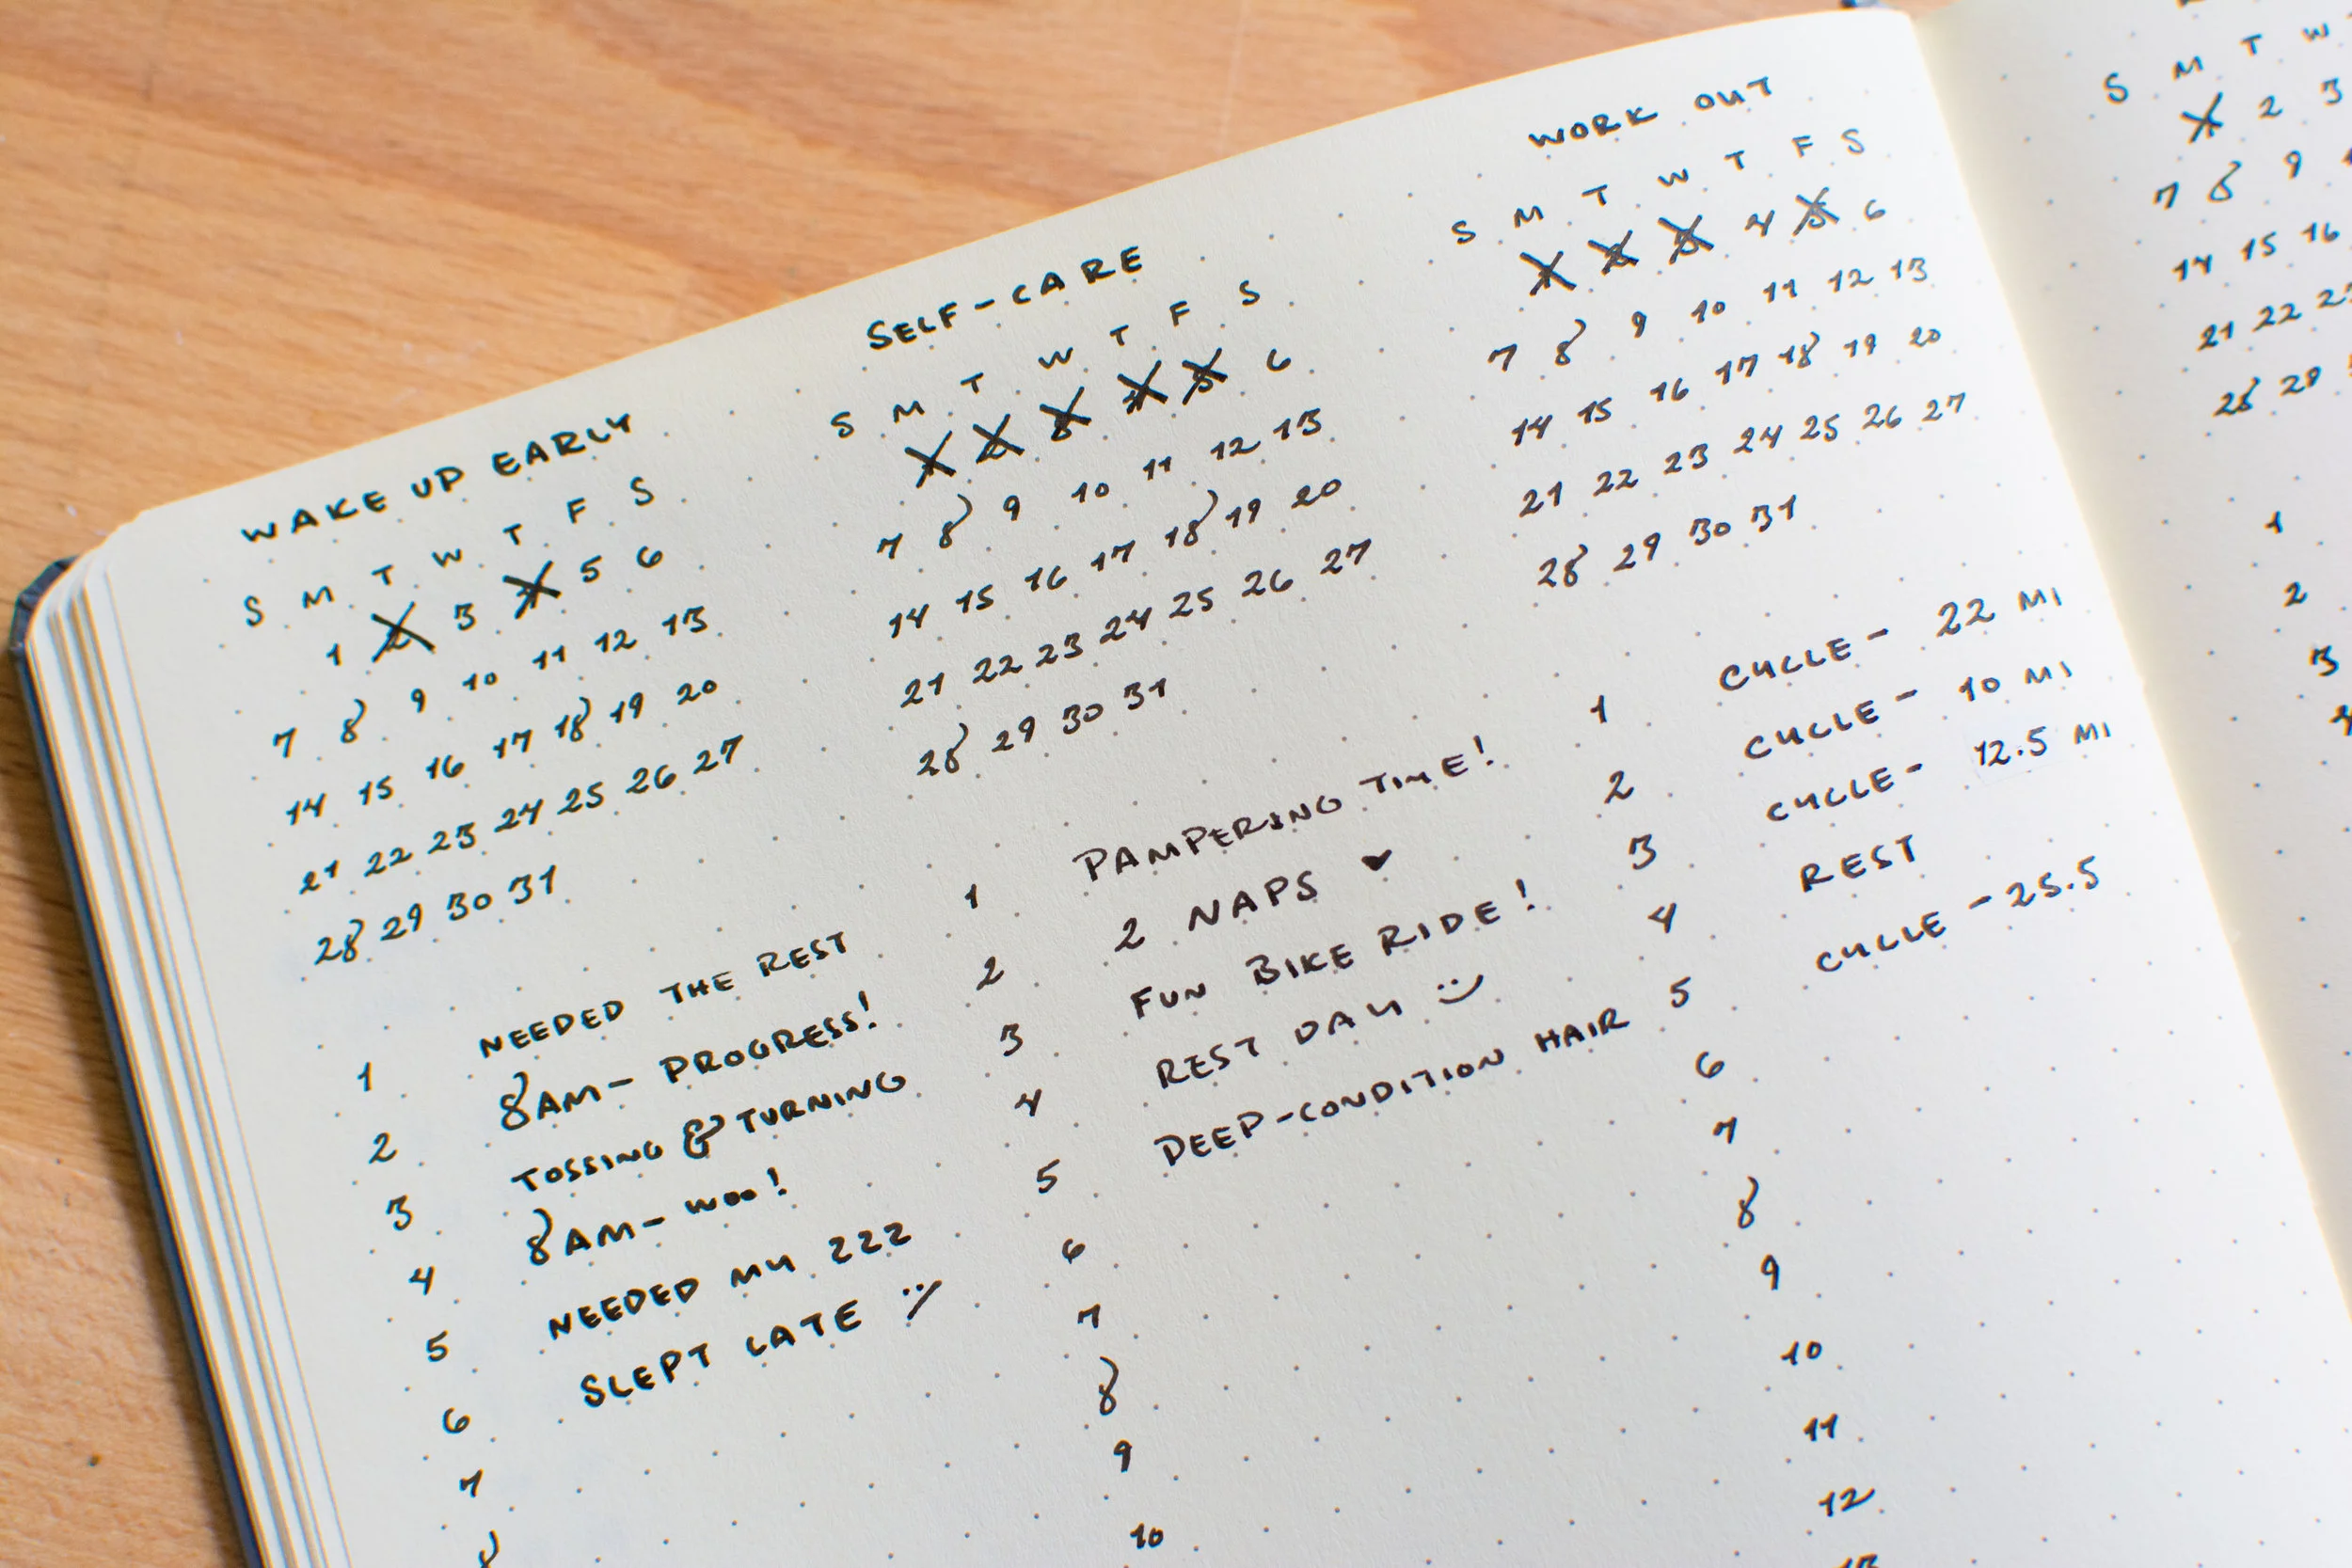 WAKE UP EARLY
S M T W T F S
1 2 3 4 5 6
7 8 9 10 11 12 13
14 15 16 17 18 19 20
21 22 23 24 25 26 27
28 29 30 31
1 NEEDED THE REST
2 8AM- PROGRESS!
3 TOSSING & TURNING
4 8AM- WOO!
5 NEEDED MY ZZZ
6 SLEPT LATE :/
7
8
SELF-CARE
S M T W T F S
1 2 3 4 5 6
7 8 9 10 11 12 13
14 15 16 17 18 19 20
21 22 23 24 25 26 27
28 29 30 31
1 PAMPERING TIME!
2 2 NAPS ♥
3 FUN BIKE RIDE!
4 REST DAY :)
5 DEEP-CONDITION HAIR
6
7
8
9
10
WORK OUT
S M T W T F S
1 2 3 4 5 6
7 8 9 10 11 12 13
14 15 16 17 18 19 20
21 22 23 24 25 26 27
28 29 30 31
1 CYCLE- 22 MI
2 CYCLE- 10 MI
3 CYCLE- 12.5 MI
4 REST
5 CYCLE -25.5
6
7
8
9
10
11
12
S M T W
1 2 3
7 8 9
14 15 16
21 22
28 29
1
2
3